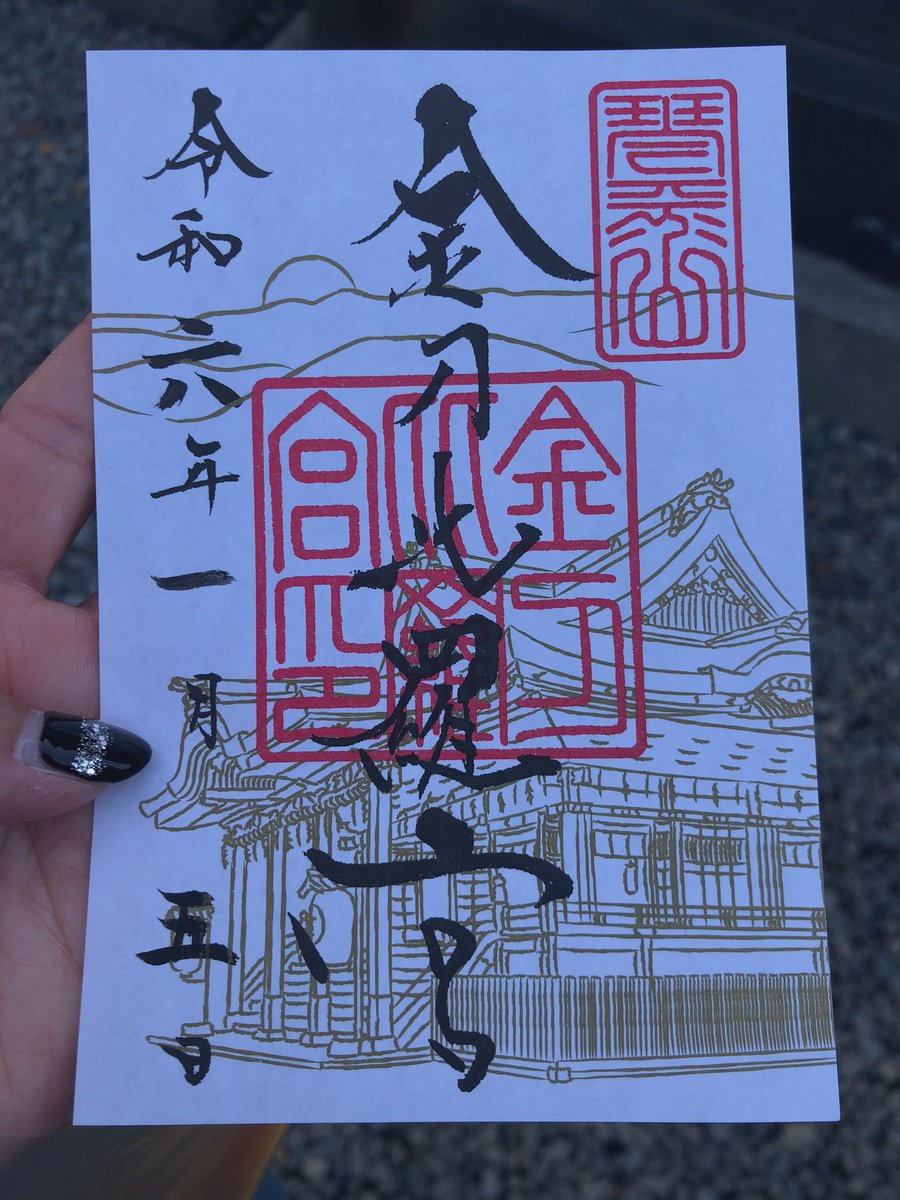 琴平山
金刀比羅宮
金刀
比羅
宮印
令和六年一月五日